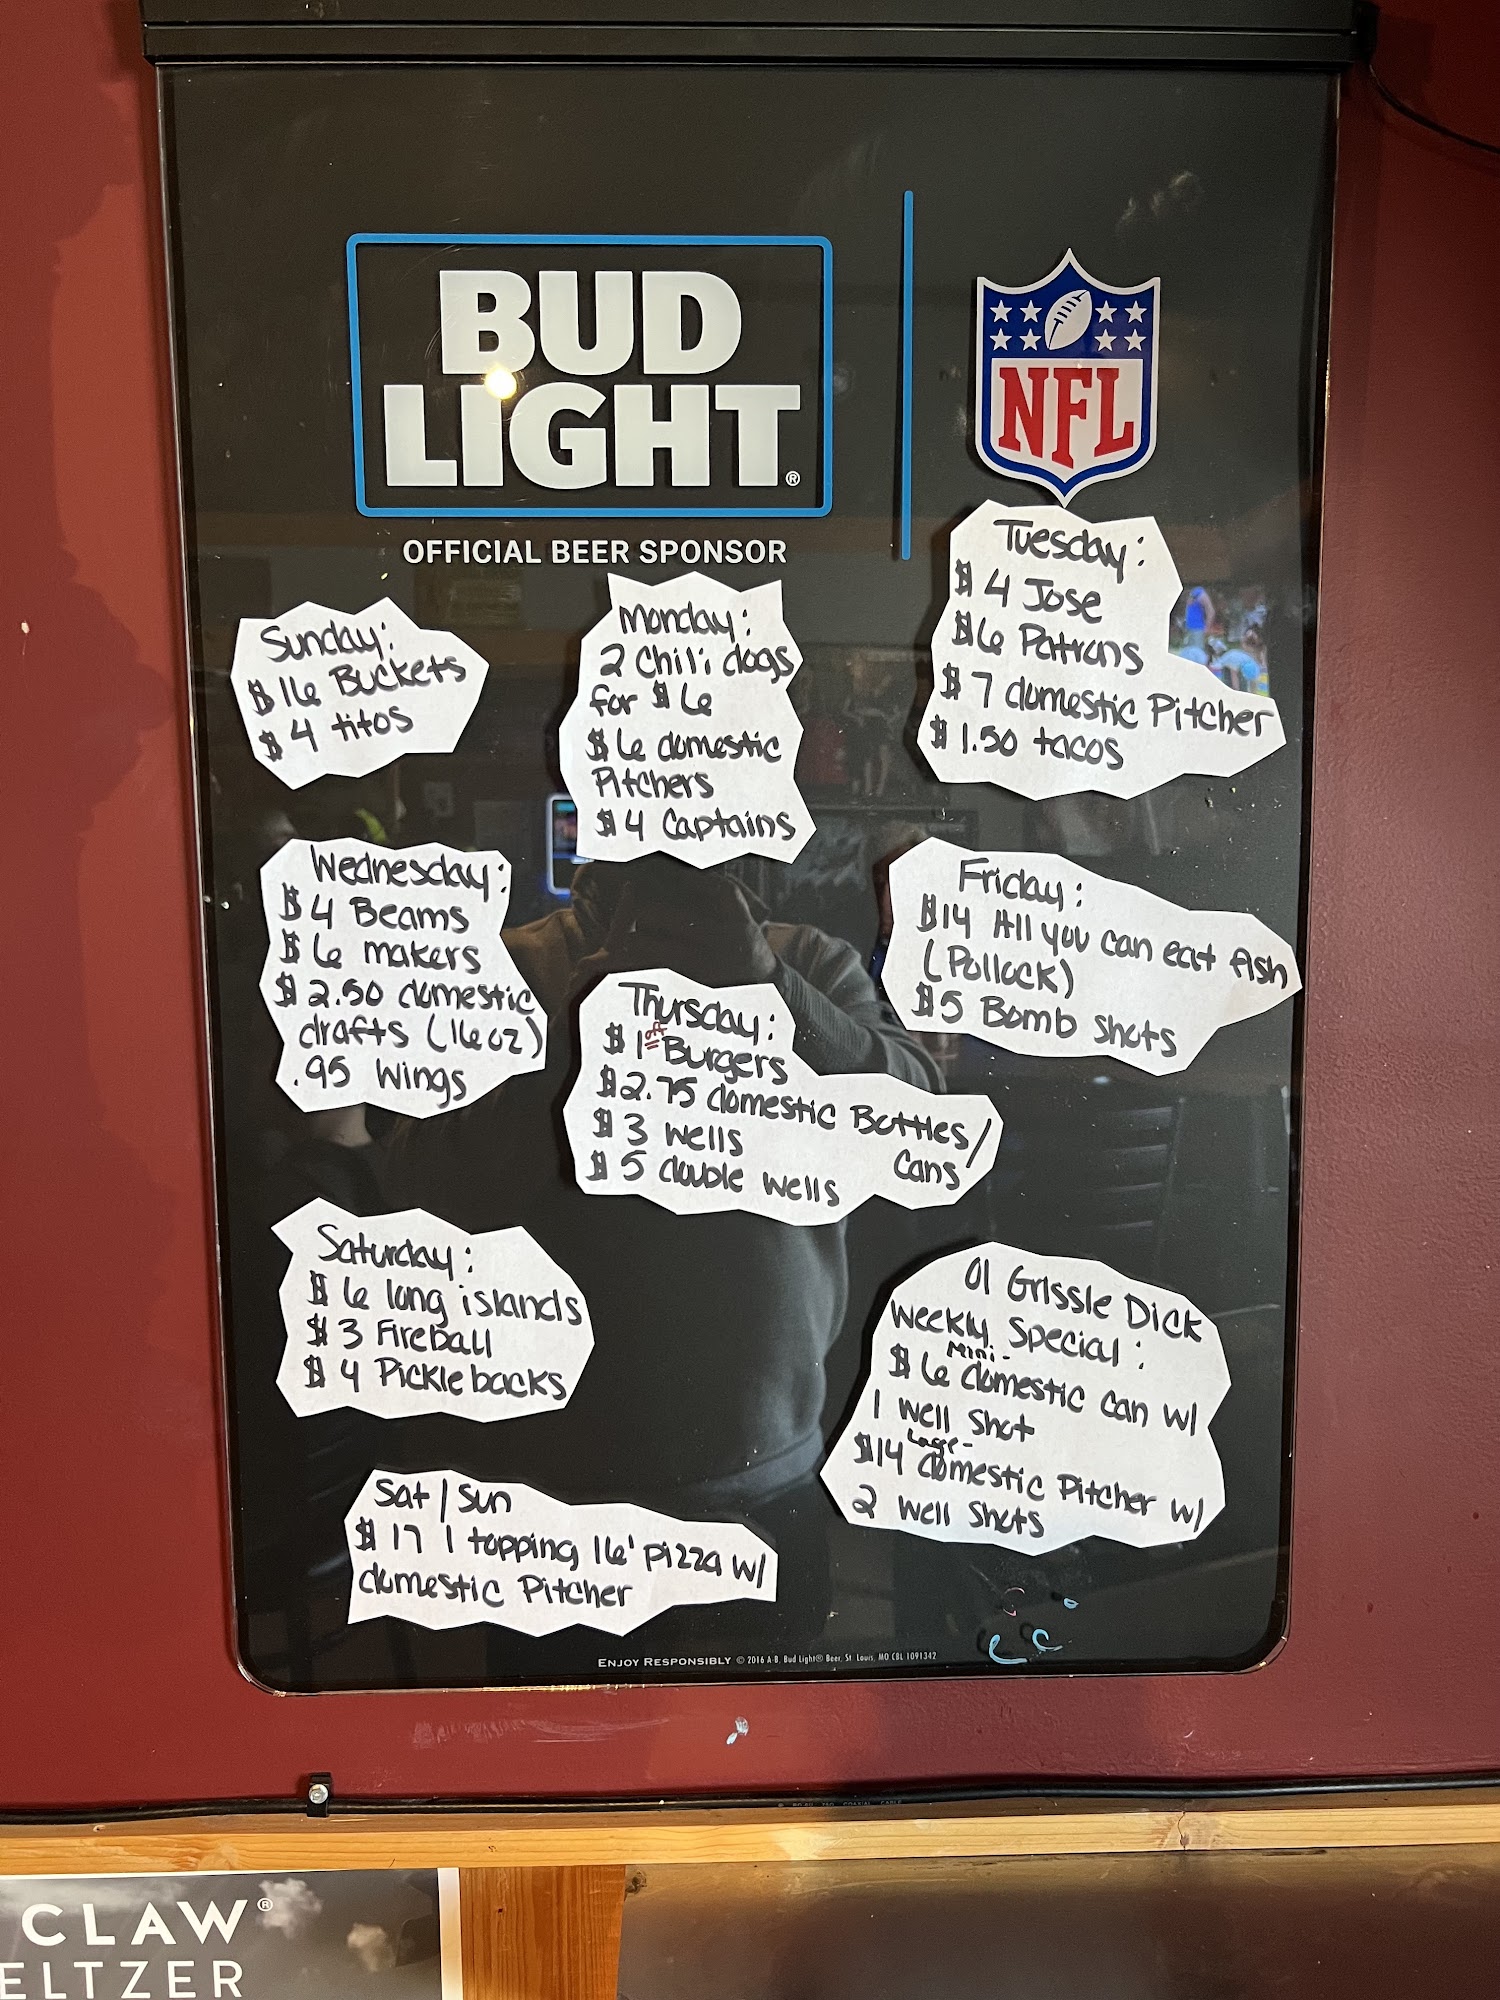 BUD
LIGHT®
OFFICIAL BEER SPONSOR
NFL
Sunday:
$16 Buckets
$4 titos
Monday:
2 Chili dogs
for $6
$6 domestic
Pitchers
$4 Captains
Tuesday:
$4 Jose
$6 Patrons
$7 domestic Pitcher
$1.50 tacos
Wednesday:
$4 Beams
$6 makers
$2.50 domestic
drafts (16oz)
.95 Wings
Thursday:
$1 off Burgers
$2.75 domestic Bottles/
Cans
$3 wells
$5 double wells
Friday:
$14 All you can eat fish
(Pollock)
$5 Bomb shots
Saturday:
$6 long islands
$3 Fireball
$4 Picklebacks
Ol Grissle Dick
Weekly Special:
Mini-
$6 domestic can w/
1 well shot
Lage-
$14 domestic Pitcher w/
2 well shots
Sat/Sun
$17 1 topping 16' pizza w/
domestic Pitcher
ENJOY RESPONSIBLY © 2016 A-B, Bud Light® Beer, St. Louis, MO CBL 1091342
CLAW®
ELTZER